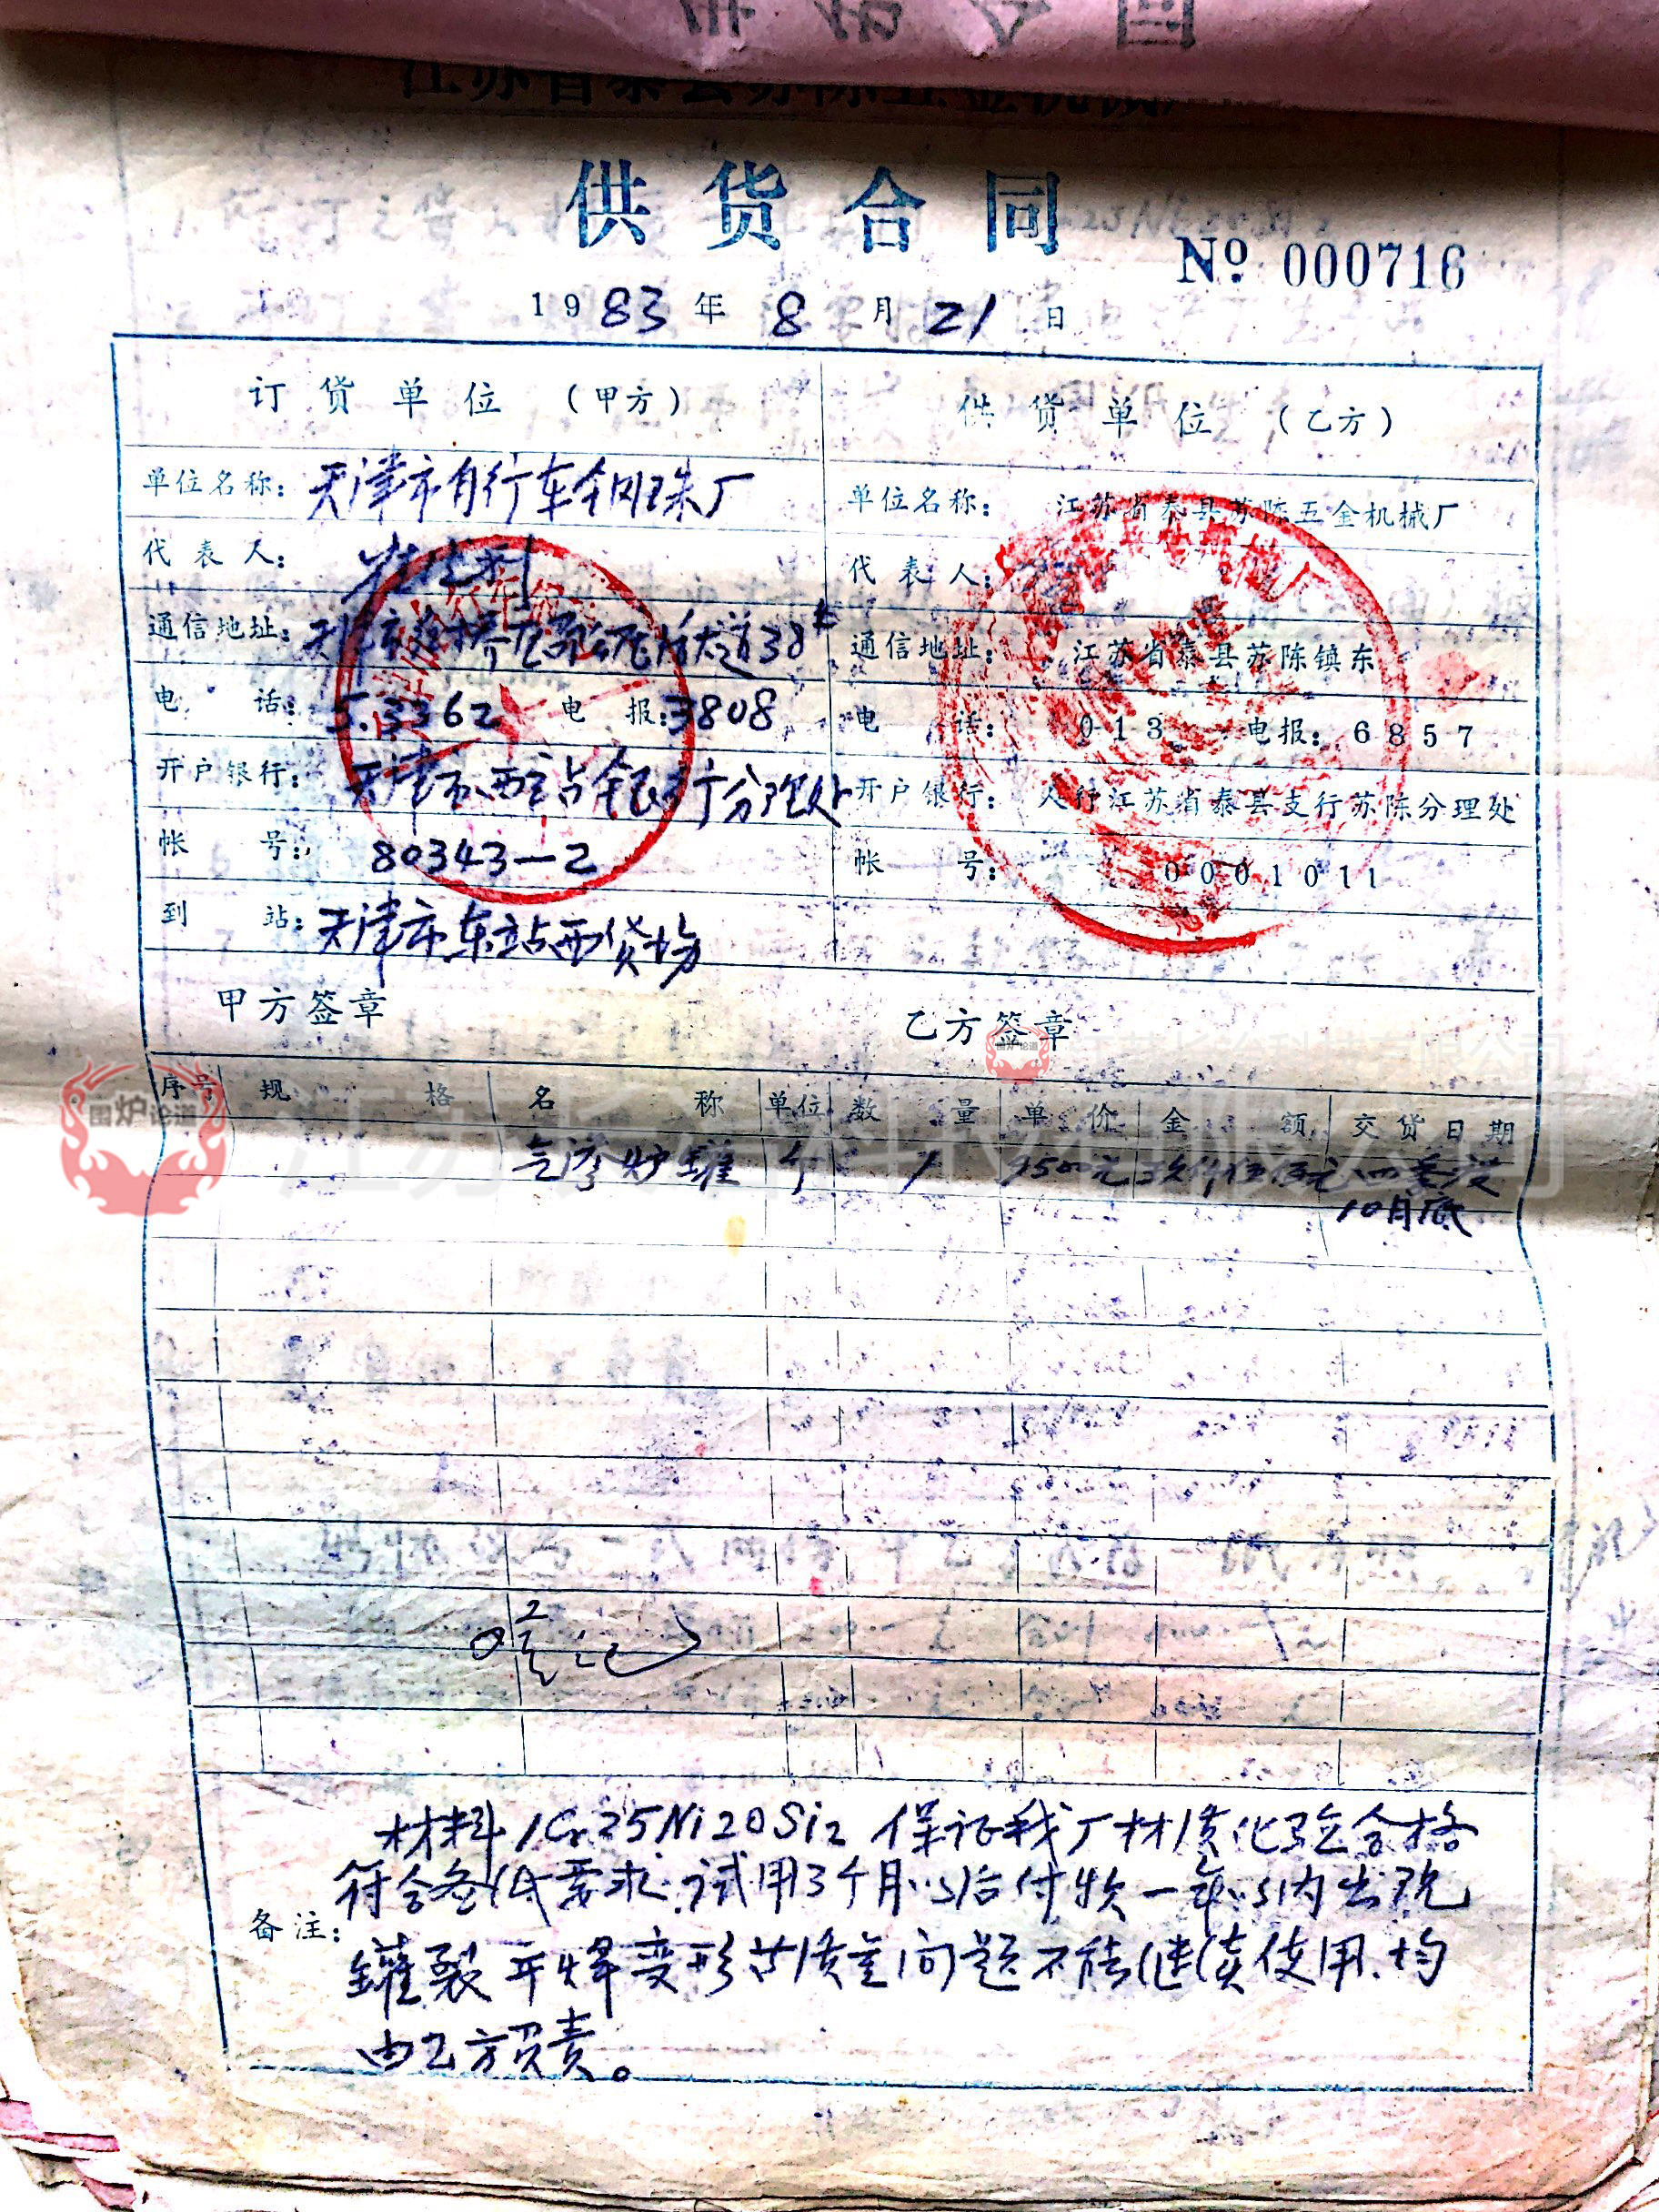 供货合同
№ 000716
1983年8月21日
订货单位（甲方） 供货单位（乙方）
单位名称：天津市自行车钢珠厂 单位名称：江苏省泰县苏陈五金机械厂
代表人： 代表人：
通信地址：天津市红桥区 38 通信地址：江苏省泰县苏陈镇东
电话：5.3362 电报：3808 电话：013 电报：6857
开户银行：天津市西站 银行分理处 开户银行：人行江苏省泰县支行苏陈分理处
帐号：80343—2 帐号：0001011
到站：天津市东站西货场
甲方签章 乙方签章
序号 规格 名称 单位 数量 单价 金额 交货日期
气渗炉罐 个 1 9500元 玖仟伍佰元 四季度
10月底
材料1Cr25Ni20Si2 保证我厂材质化验合格
符合 要求.试用3个月以后付款一年以内出现
备注：
罐裂开焊变形节质量问题不能继续使用.均
由乙方负责。
围炉论道